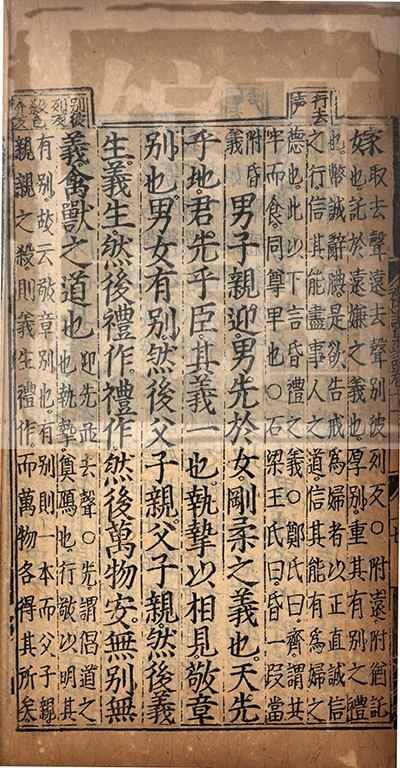 行去
声
取去聲遠去聲別彼列反○附遠附猶託
也託於遠嫌之義也厚別重其有別之禮
也幣誠辭腆是欲告戒為婦者以正直誠信
之行信其能盡事人之道信其能有為婦之
德也此以下言昏禮之義○鄭氏曰齊謂共
牢而食同尊卑也○石梁王氏曰昏一段當
附昏
義
男子親迎男先於女剛柔之義也天先
乎地君先乎臣其義一也執摯以相見敬章
別也男女有別然後父子親父子親然後義
生義生然後禮作禮作然後萬物安無別無
義禽獸之道也
迎先並去聲○先謂倡道之
也執摯奠鴈也行敬以明其
別彼
列反
殺色
介反
有別故云敬章別也有別則一本而父子親
親親之殺則義生禮作而萬物各得其所矣